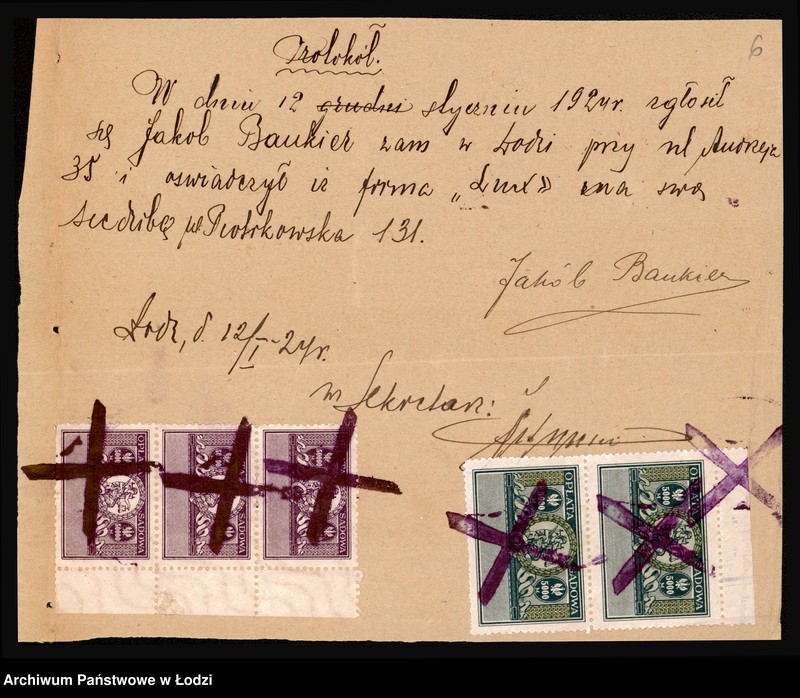 Protokół.
6
W dniu 12 grudni styczniu 1924r. zgłosił
się Jakob Bankier zam w Łodzi przy ul Andrzeja
35 i oswiadczył iz firma „Lux” ma swą
siedzibę ul Piotrkowska 131.
Jakób Bankier
Łodz, d. 12/I-24r.
Sekretarz:
OPŁATA SĄDOWA
OPŁATA SĄDOWA
OPŁATA SĄDOWA
OPŁATA SĄDOWA 5000 5000
OPŁATA SĄDOWA 5000 5000
Archiwum Państwowe w Łodzi